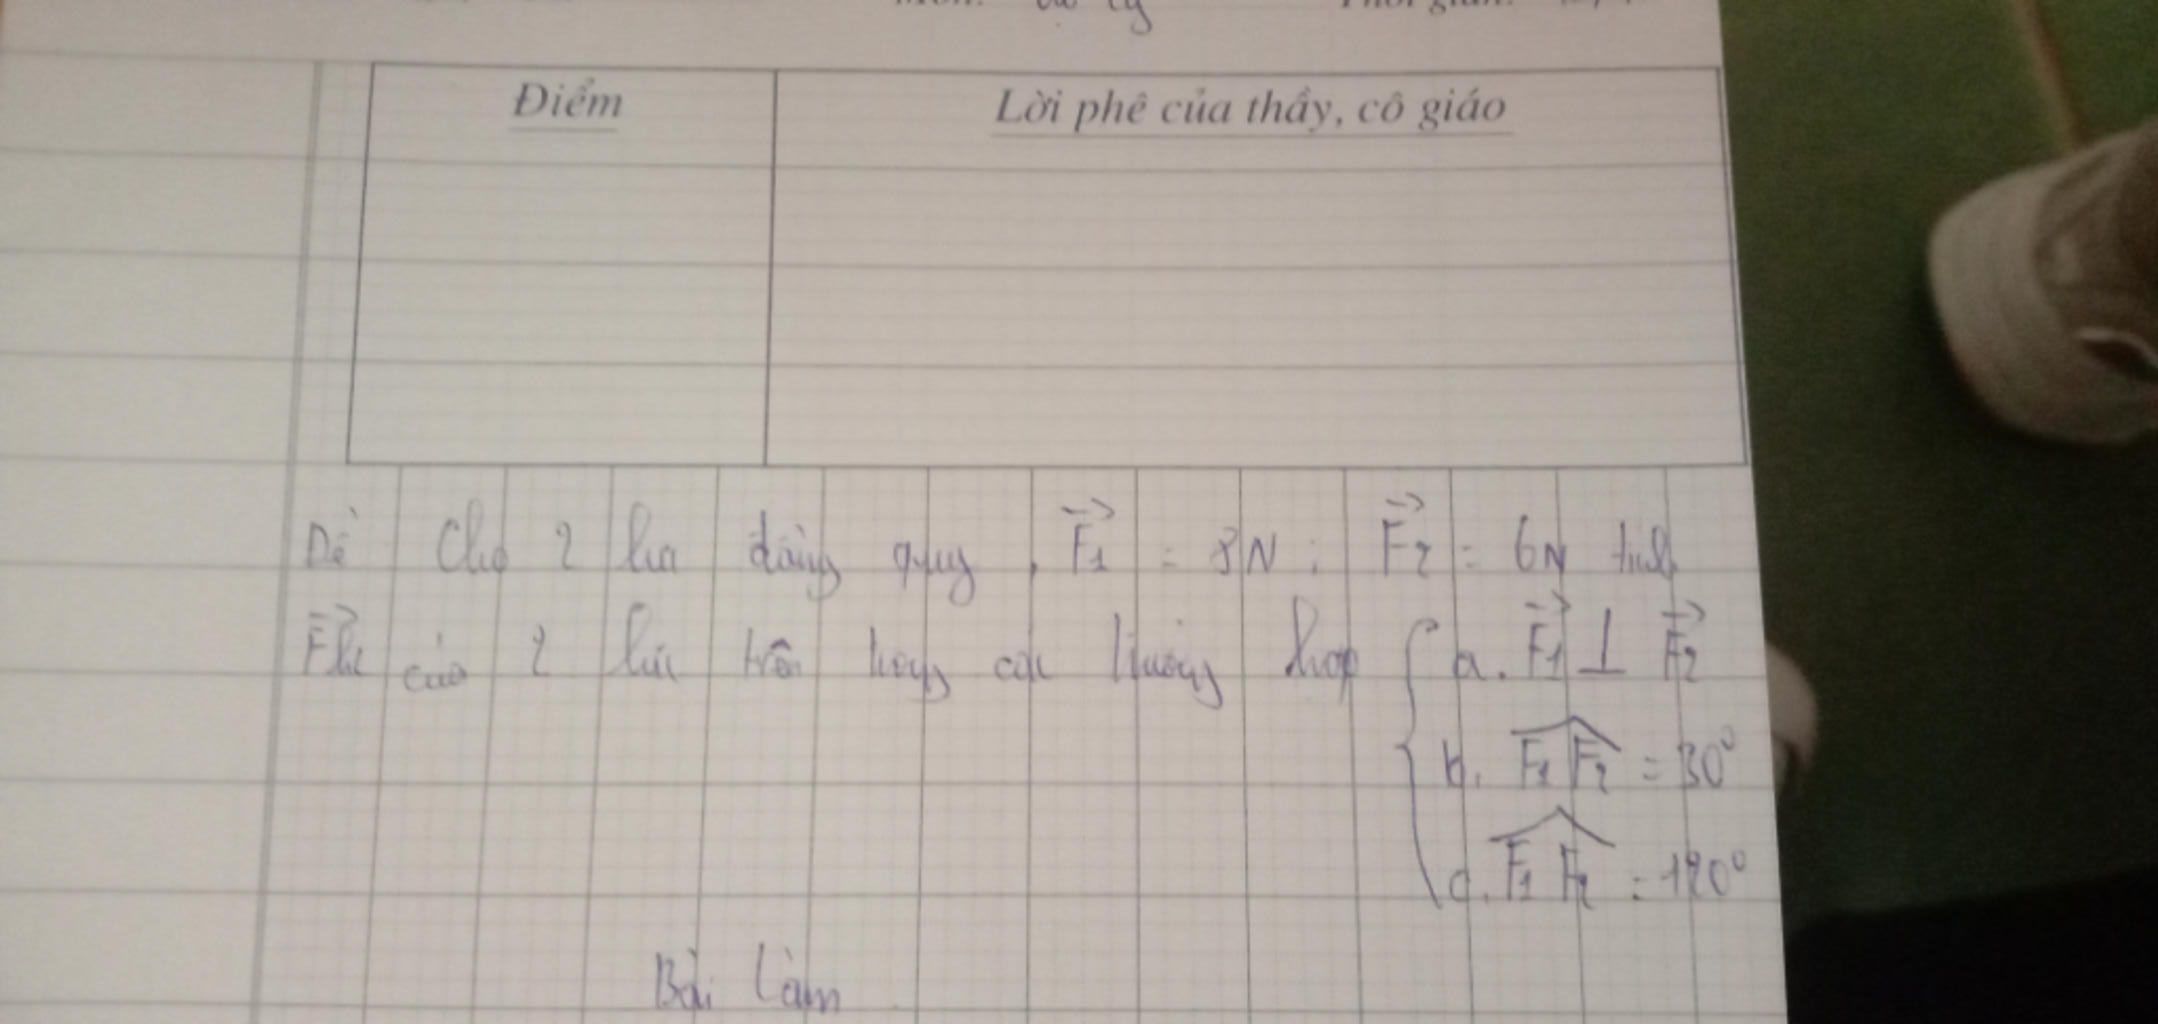 Môn: vật lý Thời gian:
Điểm
Lời phê của thầy, cô giáo
Đề Cho 2 lực đồng quy, F₁→ = 8N; F₂→ = 6N tính
Fhl→ của 2 lực trên trong các trường hợp { a. F₁→ ⊥ F₂→
b. F₁F₂ = 30°
c. F₁F₂ = 120°
Bài làm